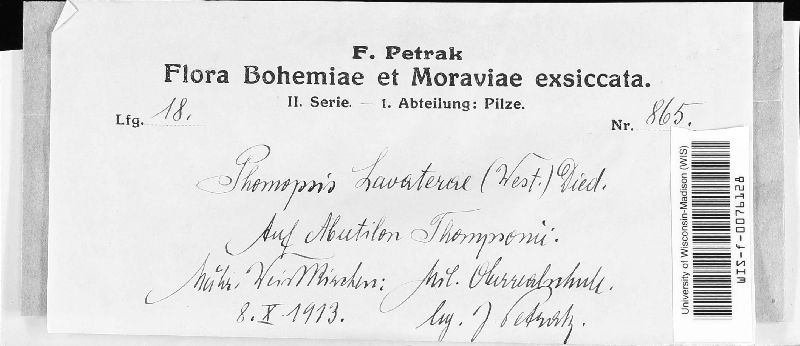 F. Petrak
Flora Bohemiae et Moraviae exsiccata.
II. Serie. — 1. Abteilung: Pilze.
Lfg. 18.
Nr. 865.
Phomopsis Lavaterae (West.) Died.
Auf Abutilon Thompsonii.
Mähr. Weisskirchen: Oberrealschule.
8. X 1913.
lg. J Petrak.
University of Wisconsin-Madison (WIS)
WIS-f-0076128